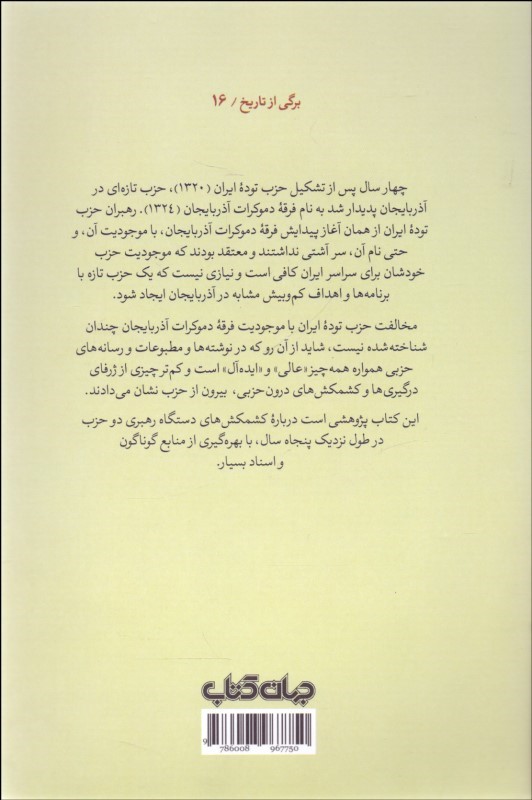 برگی از تاریخ / ۱۶
چهار سال پس از تشکیل حزب تودهٔ ایران (۱۳۲۰)، حزب تازه‌ای در
آذربایجان پدیدار شد به نام فرقهٔ دموکرات آذربایجان (۱۳۲۴). رهبران حزب
تودهٔ ایران از همان آغاز پیدایش فرقهٔ دموکرات آذربایجان، با موجودیت آن، و
حتی نام آن، سر آشتی نداشتند و معتقد بودند که موجودیت حزب
خودشان برای سراسر ایران کافی است و نیازی نیست که یک حزب تازه با
برنامه‌ها و اهداف کم‌وبیش مشابه در آذربایجان ایجاد شود.
مخالفت حزب تودهٔ ایران با موجودیت فرقهٔ دموکرات آذربایجان چندان
شناخته‌شده نیست، شاید از آن رو که در نوشته‌ها و مطبوعات و رسانه‌های
حزبی همواره همه‌چیز «عالی» و «ایده‌آل» است و کم‌تر چیزی از ژرفای
درگیری‌ها و کشمکش‌های درون‌حزبی، بیرون از حزب نشان می‌دادند.
این کتاب پژوهشی است دربارهٔ کشمکش‌های دستگاه رهبری دو حزب
در طول نزدیک پنجاه سال، با بهره‌گیری از منابع گوناگون
و اسناد بسیار.
جهان کتاب
9 786008 967750